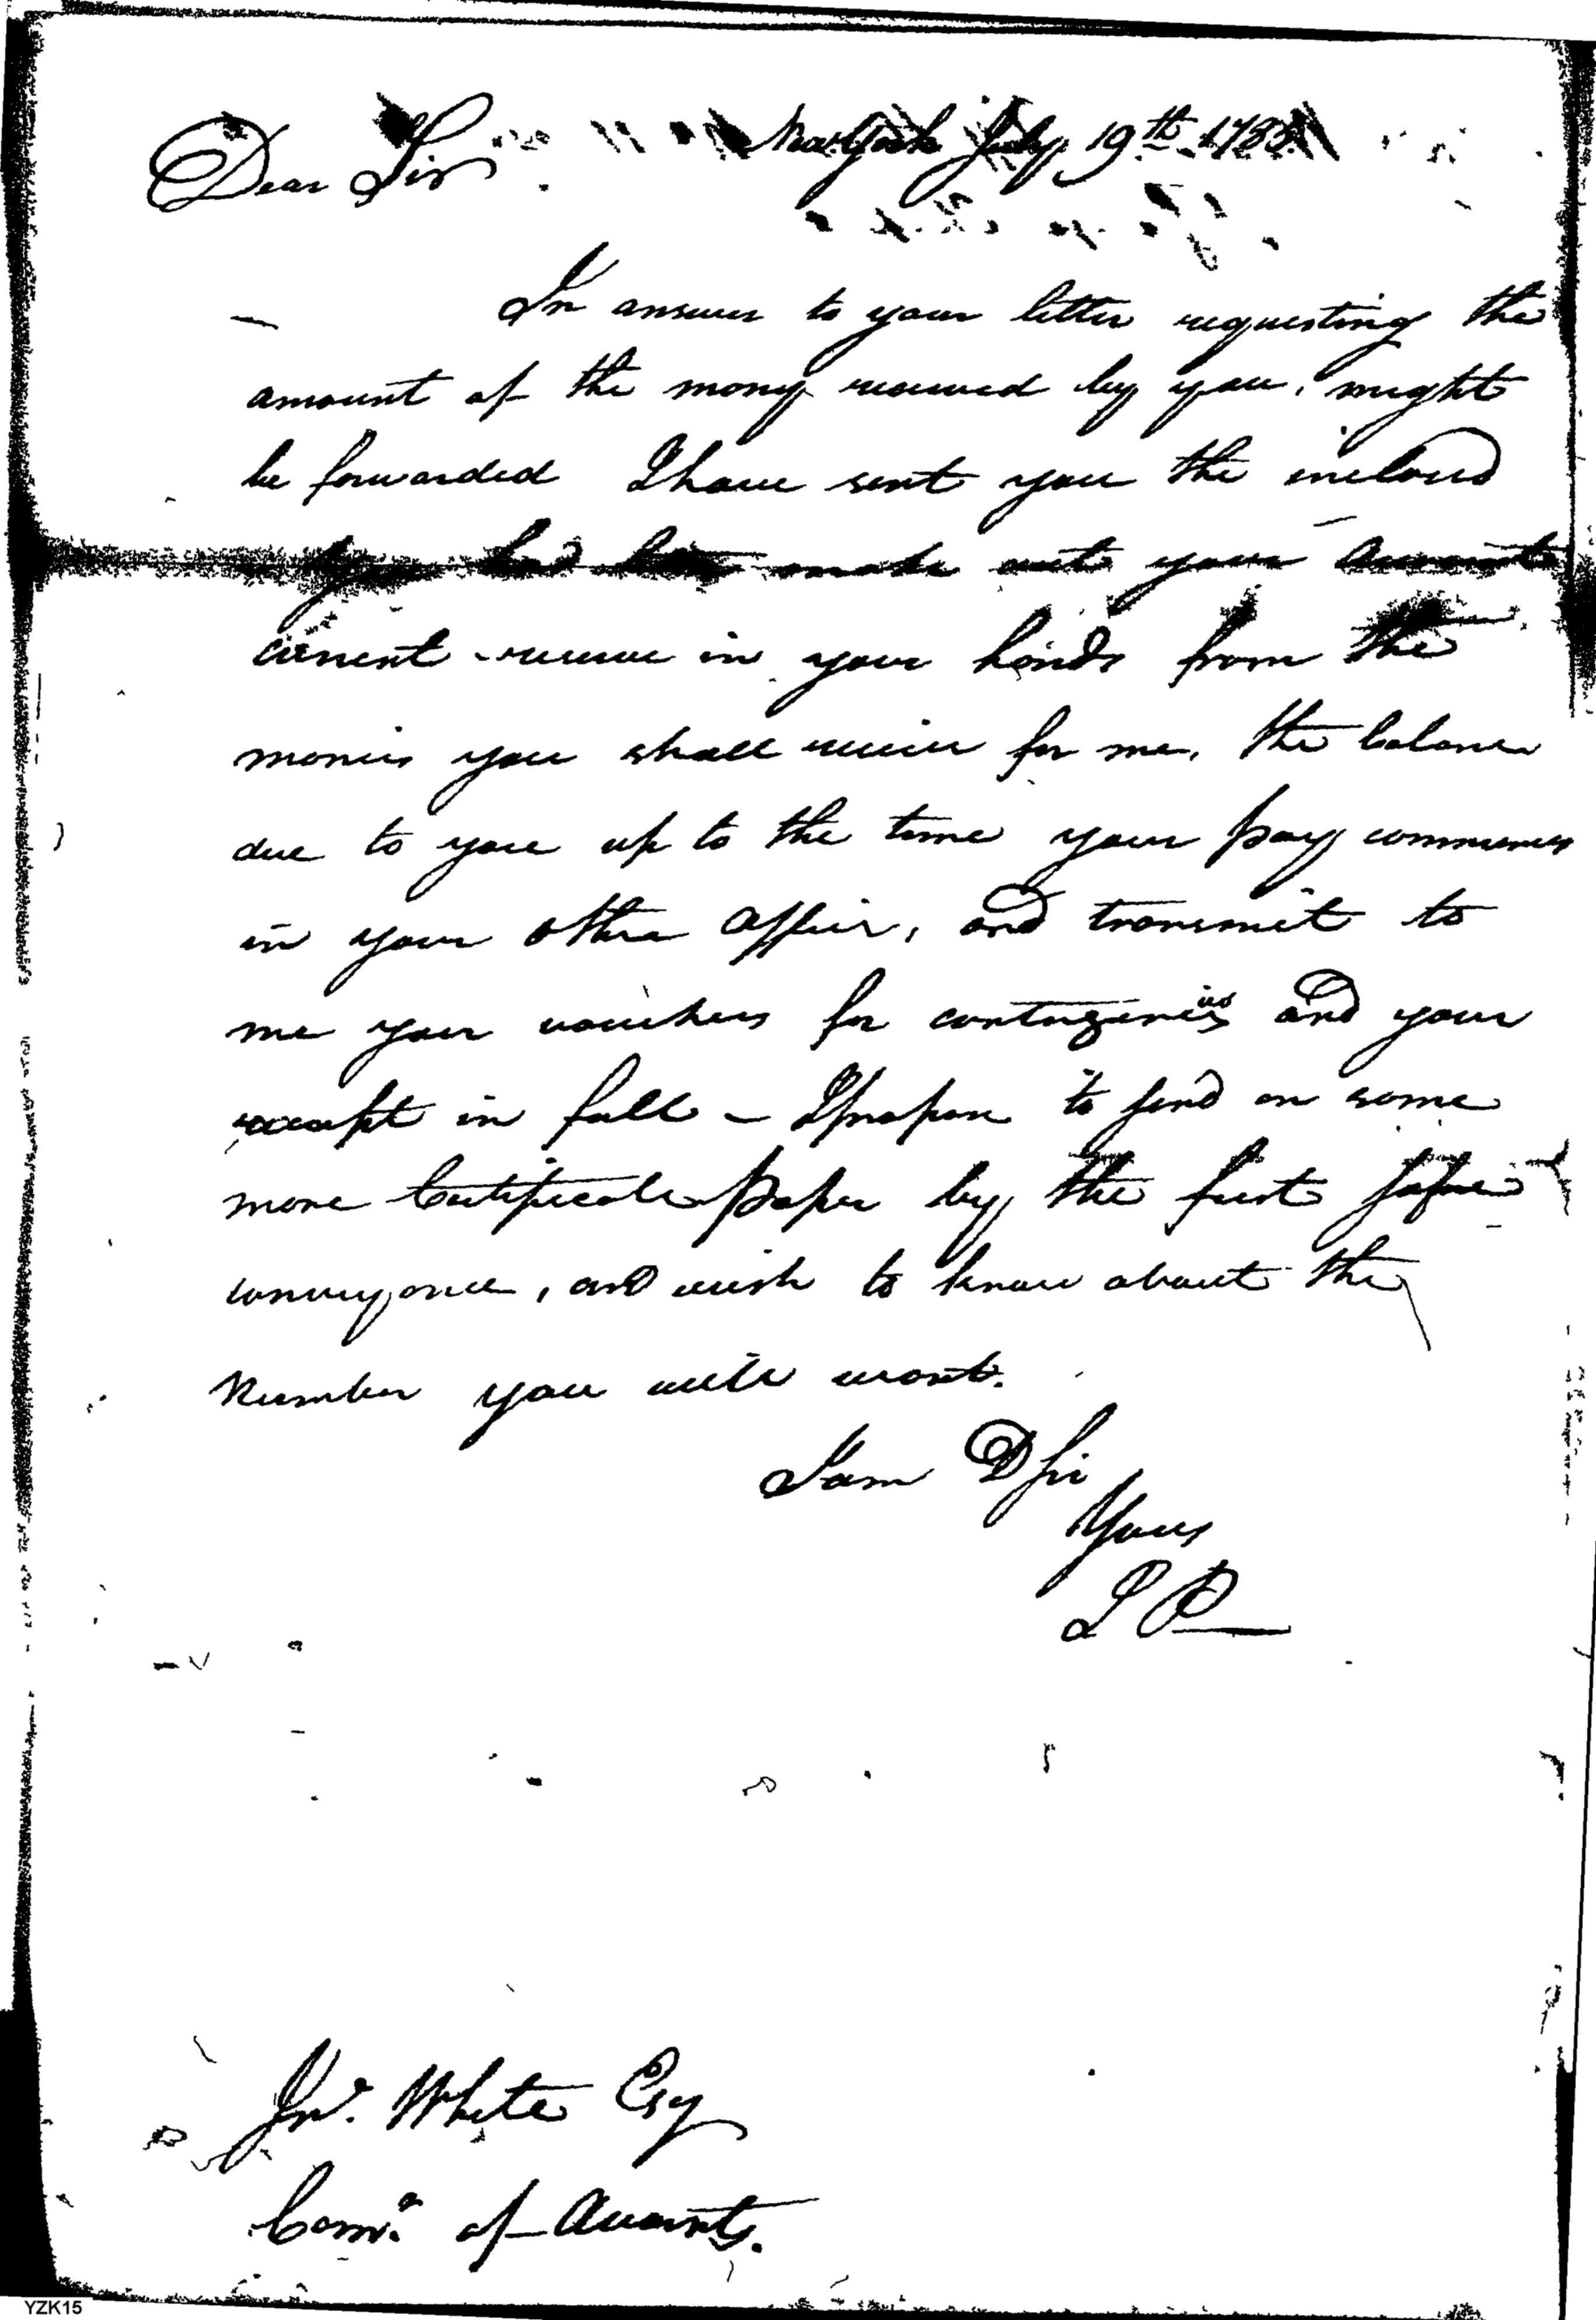 New York July 19th 178
Dear Sir
In answer to your letter requesting the
amount of the mony received by you, might
be forwarded I have sent you the inclosed
You had better make out your Account
current reserve in your hands from the
monies you shall receive for me, the balance
due to you up to the time your pay commences
in your other office, and transmit to
me your vouchers for contingencies and your
receipt in full — I propose to send on some
more Certificate Paper by the first safe
conveyance, and wish to know about the
Number you will want.
I am D Sir
Yours
J P
Jno. White Esq
Comr. of Accounts.
YZK15